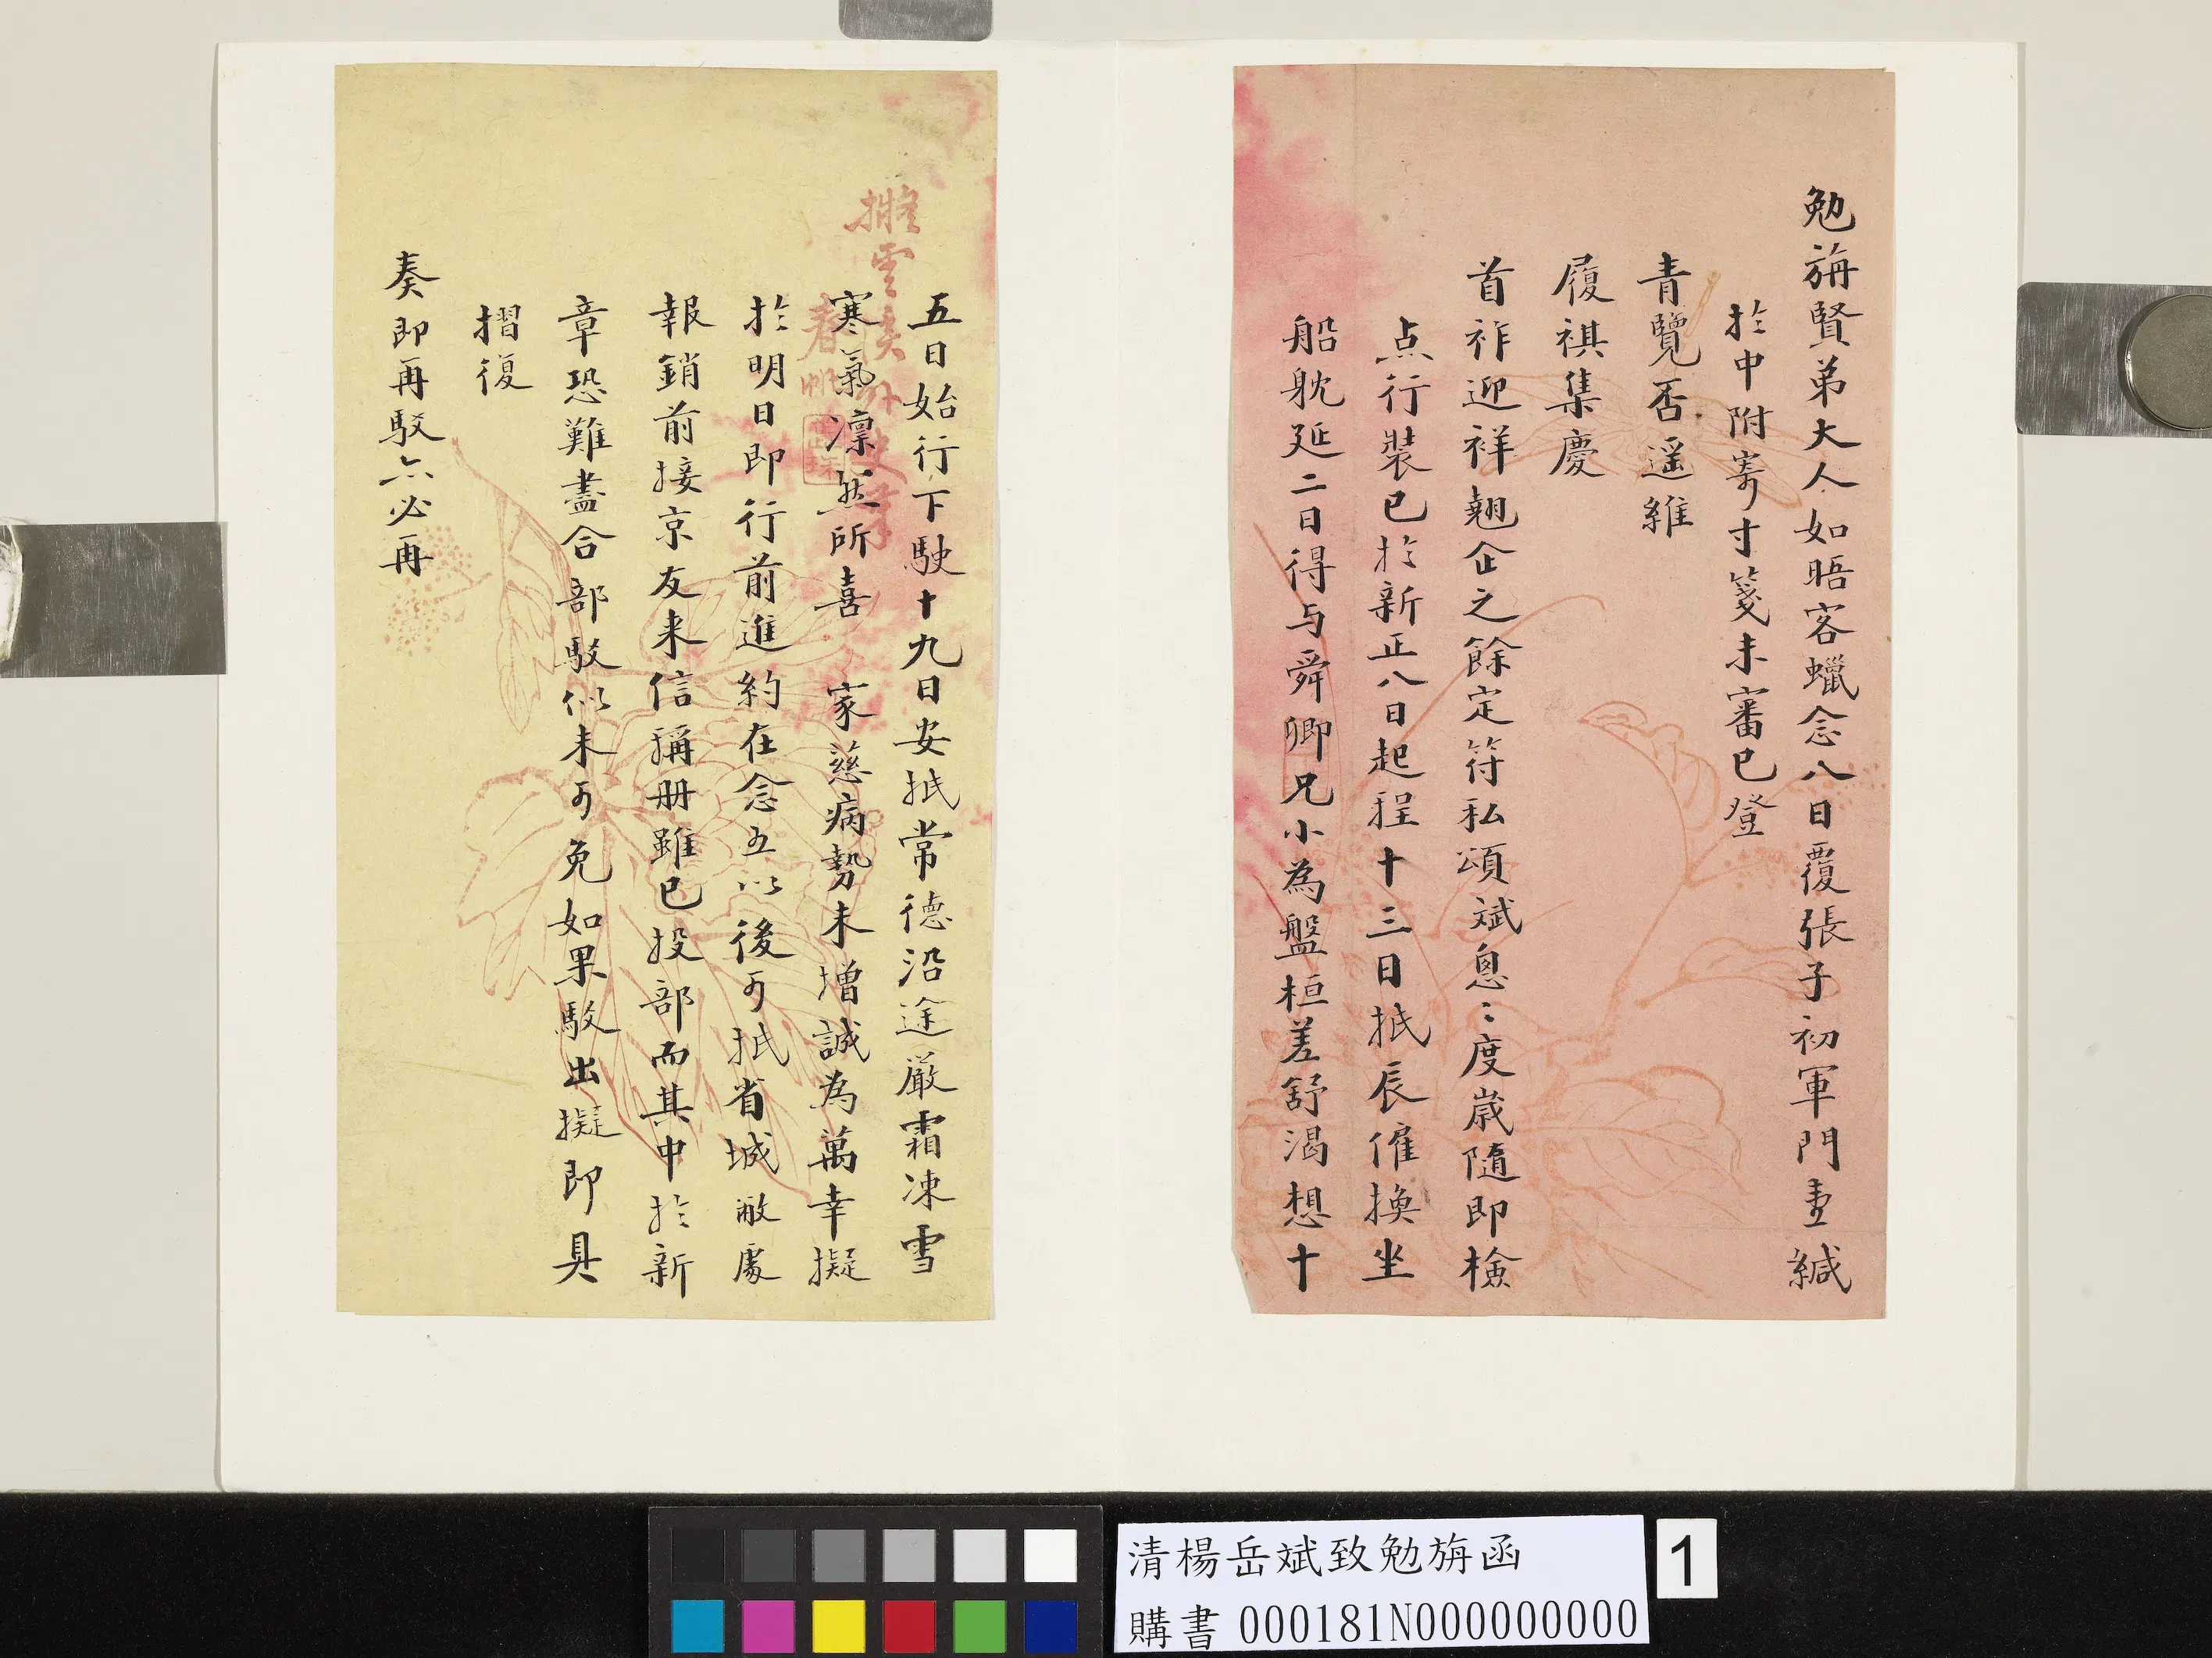 勉旃賢弟大人如晤客蠟念八日覆張子初軍門壹緘
於中附寄寸箋未審已登
青覽否遥維
履祺集慶
首祚迎祥翹企之餘定符私頌斌悤〻度歲隨即檢
点行裝已於新正八日起程十三日抵辰僱換坐
船躭延二日得与舜卿兄小為盤桓差舒渴想十
五日始行下駛十九日安抵常德沿途嚴霜凍雪
寒氣凛然所喜 家慈病勢未增誠為萬幸擬
於明日即行前進約在念五以後可抵省城敝處
報銷前接京友来信稱册雖已投部而其中於新
章恐難盡合部駁似未可免如果駁出擬即具
摺復
奏即再駁亦必再
擁雲
春帆
清楊岳斌致勉旃函
購書 000181N000000000
1